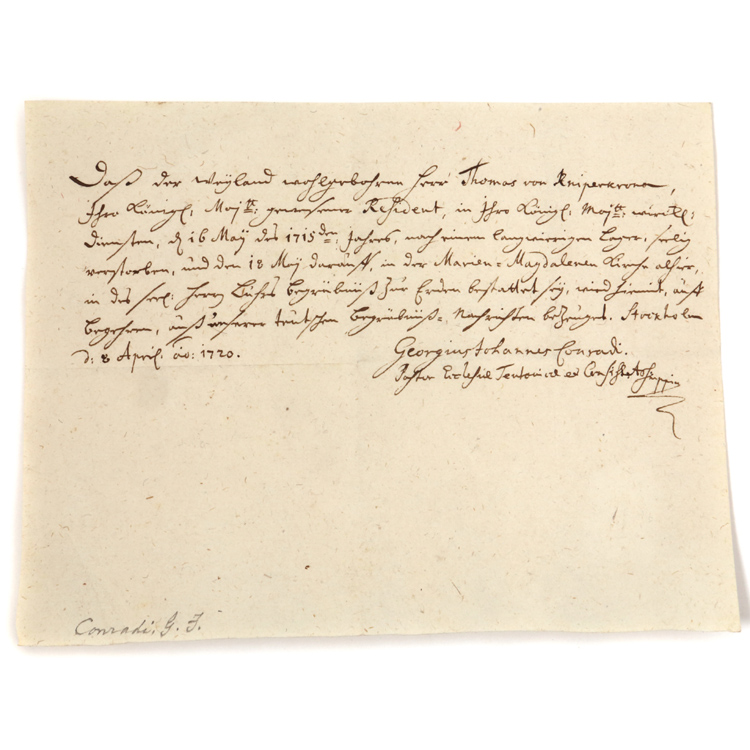 Daß der Weyland wohlgebohren Herr Thomas von Kniperkrona,
Ihro Königl: Maj:tt: gewesener Resident, in Ihro Königl: Maj:tt: würckl:
diensten, d. 16 Maij des 1715den: Jahres, nach einem langwierigen Lager, seelig
verstorben, und den 18 Maij darauff, in der Marien-Magdalenen Kirche alhier,
in des seel: Herrn Begräbniß zur Erden bestattet sey, wird hiemit, auff
begehren, auß unserer teutschen Begräbniß-Nachrichten bezeuget. Stockholm
d: 8 April. ao: 1720.
Georgius Johannes Conradi.
Pastor Ecclesiae Teutonicae et Consist:
Conradi, G. J.